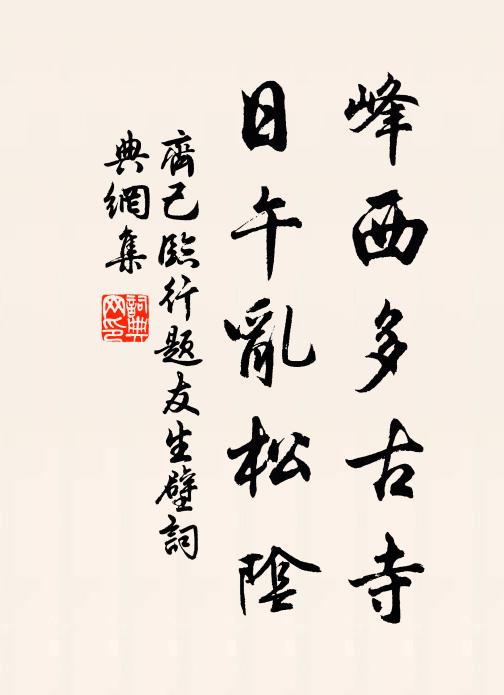 峰西多古寺
日午亂松陰
齊己臨行題友生壁詞
典網集
詞典
网印